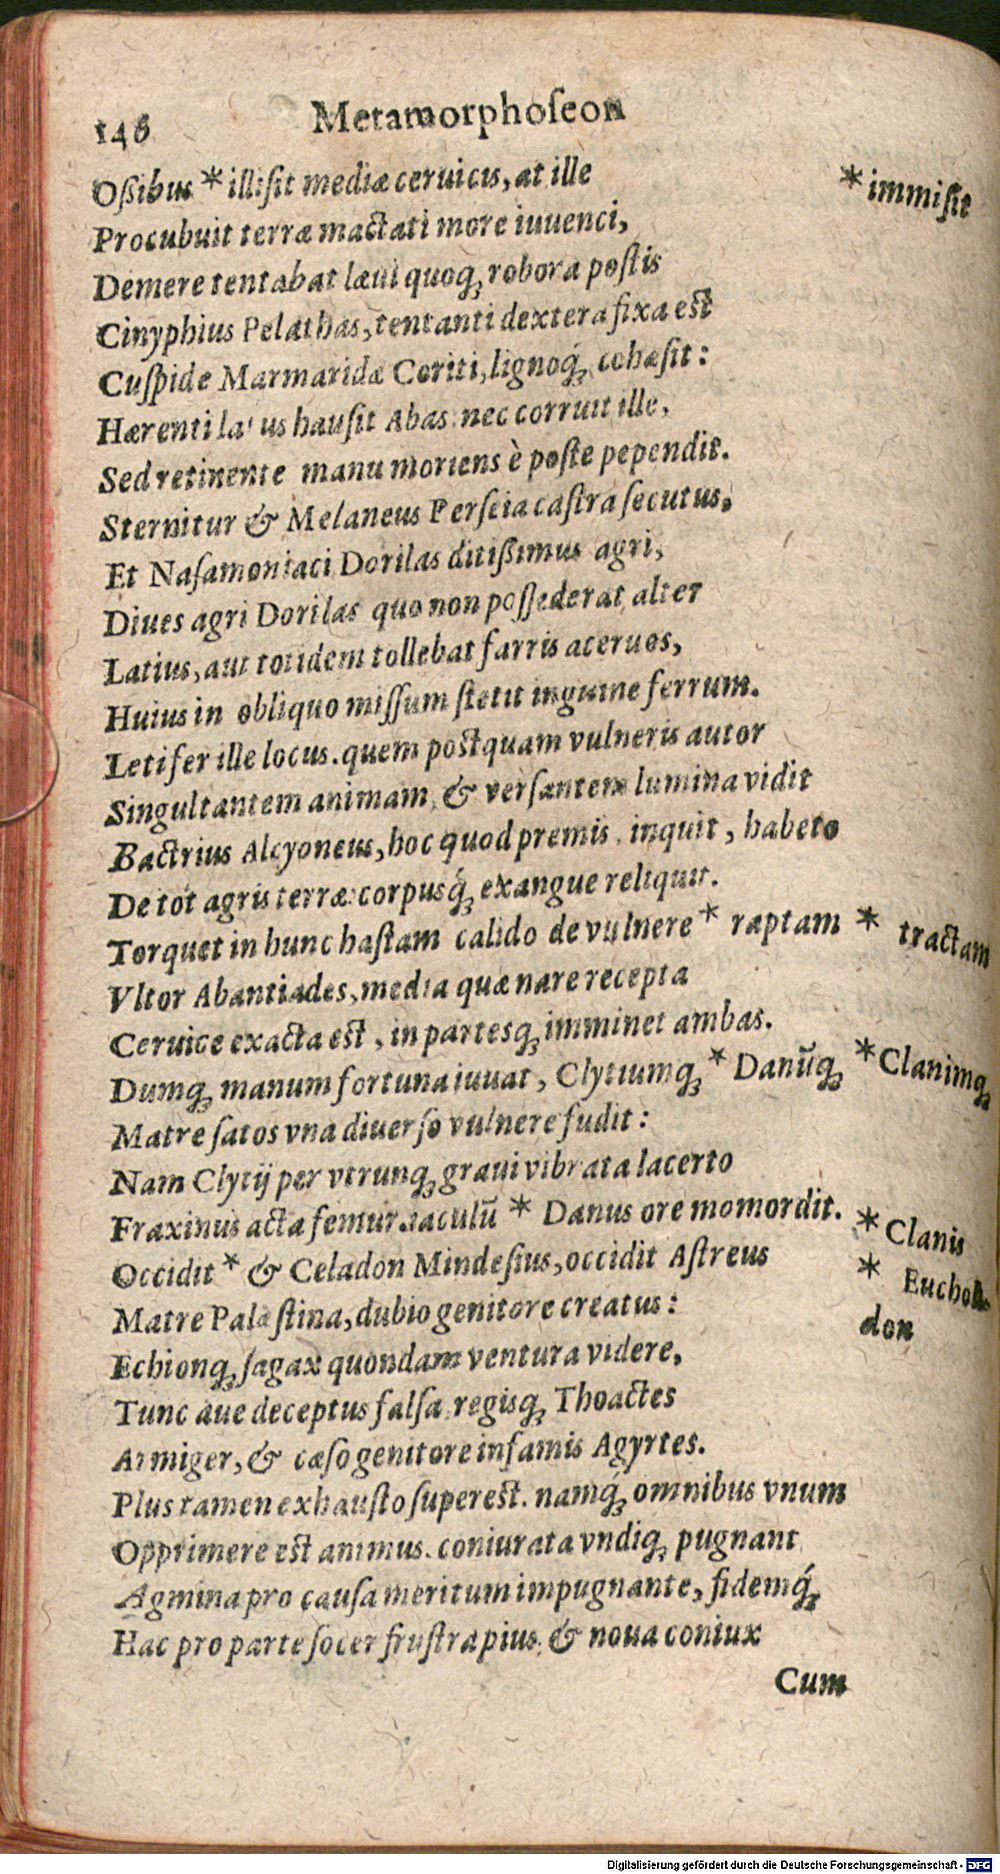 146 Metamorphoseon
Oßibus * illiſit mediæ ceruicis, at ille * immiſit
Procubuit terræ mactati more iuuenci,
Demere tentabat læui quoq; robora poſtis
Cinyphius Pelathas, tentanti dextera fixa est
Cuſpide Marmaridæ Coriti, lignoq́; cohæſit:
Hærenti latus hauſit Abas. nec corruit ille,
Sed retinente manu moriens è poſte pependit.
Sternitur & Melaneus Perſeia caſtra ſecutus,
Et Naſamoniaci Dorilas ditißimus agri,
Diues agri Dorilas quo non poſſederat alter
Latius, aut totidem tollebat farris aceruos,
Huius in obliquo miſſum ſtetit inguine ferrum.
Letifer ille locus. quem postquam vulneris autor
Singultantem animam, & verſantem lumina vidit
Bactrius Alcyoneus, hoc quod premis, inquit, habeto
De tot agris terræ: corpusq́; exangue reliquit.
Torquet in hunc haſtam calido de vulnere * raptam * tractam
Vltor Abantiades, media quæ nare recepta
Ceruice exacta est, in partesq; imminet ambas.
Dumq; manum fortuna iuuat, Clytiumq; * Danūq; * Clanimq;
Matre ſatos vna diuerſo vulnere fudit:
Nam Clytij per vtrunq; graui vibrata lacerto
Fraxinus acta femur. iaculū * Danus ore momordit. * Clanis
Occidit * & Celadon Mindeſius, occidit Aſtreus * Eucho
Matre Palæſtina, dubio genitore creatus: don
Echionq; ſagax quondam ventura videre,
Tunc aue deceptus falſa, regisq; Thoactes
Armiger, & cæſo genitore infamis Agyrtes.
Plus tamen exhauſto ſuperest. namq́; omnibus vnum
Opprimere est animus. coniurata vndiq; pugnant
Agmina pro cauſa meritum impugnante, fidemq́;
Hac pro parte ſocer fruſtra pius, & noua coniux
Cum
Digitalisierung gefördert durch die Deutsche Forschungsgemeinschaft - DFG